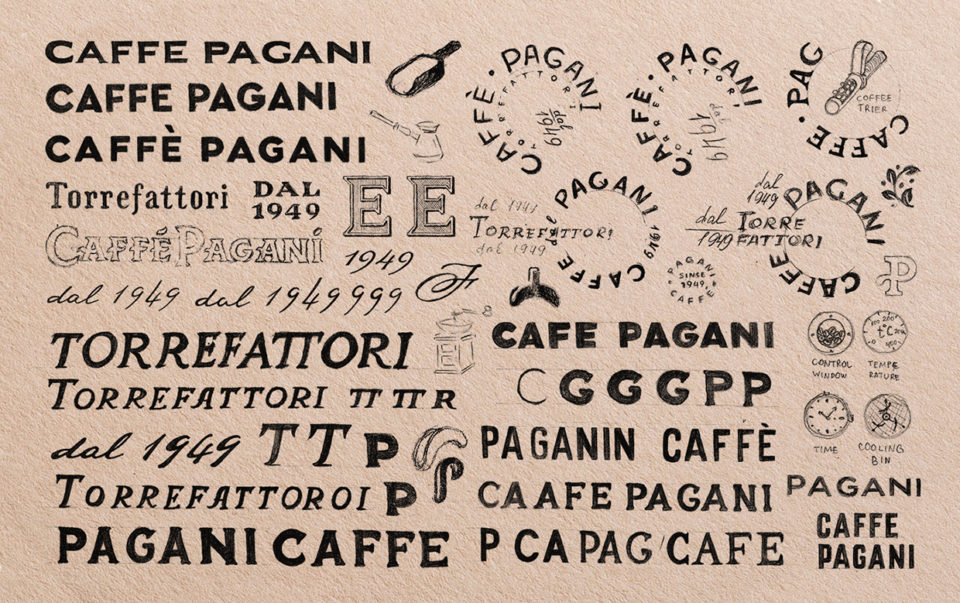 CAFFE PAGANI
CAFFE PAGANI
CAFFÈ PAGANI
Torrefattori
DAL
1949
E E
CAFFÉ PAGANI
1949
dal 1949 dal 1949999
F
TORREFATTORI
TORREFATTORI TT TT R
dal 1949 T T P
TORREFATTOROI P P
PAGANI CAFFE
CAFFÈ · PAGANI
TORREFATTORI
dal
1949
CAFFÈ · PAGANI
TORREFATTORI
dal
1949
CAFFE · PAG
COFFEE
TRIER
dal 1949
TORREFATTORI
dal 1949
CAFFE dal PAGANI 1949
dal
1949
dal
1949
TORRE
FATTORI
CAFFE PAGANI
PAGANI
SINCE
1949
CAFFE
P
CAFE PAGANI
C G G G P P
PAGANIN CAFFÈ
CA AFE PAGANI
P CA PAG CAFE
t°C
CONTROL
WINDOW
TEMPE
RATURE
TIME
COOLING
BIN
PAGANI
CAFFE
PAGANI